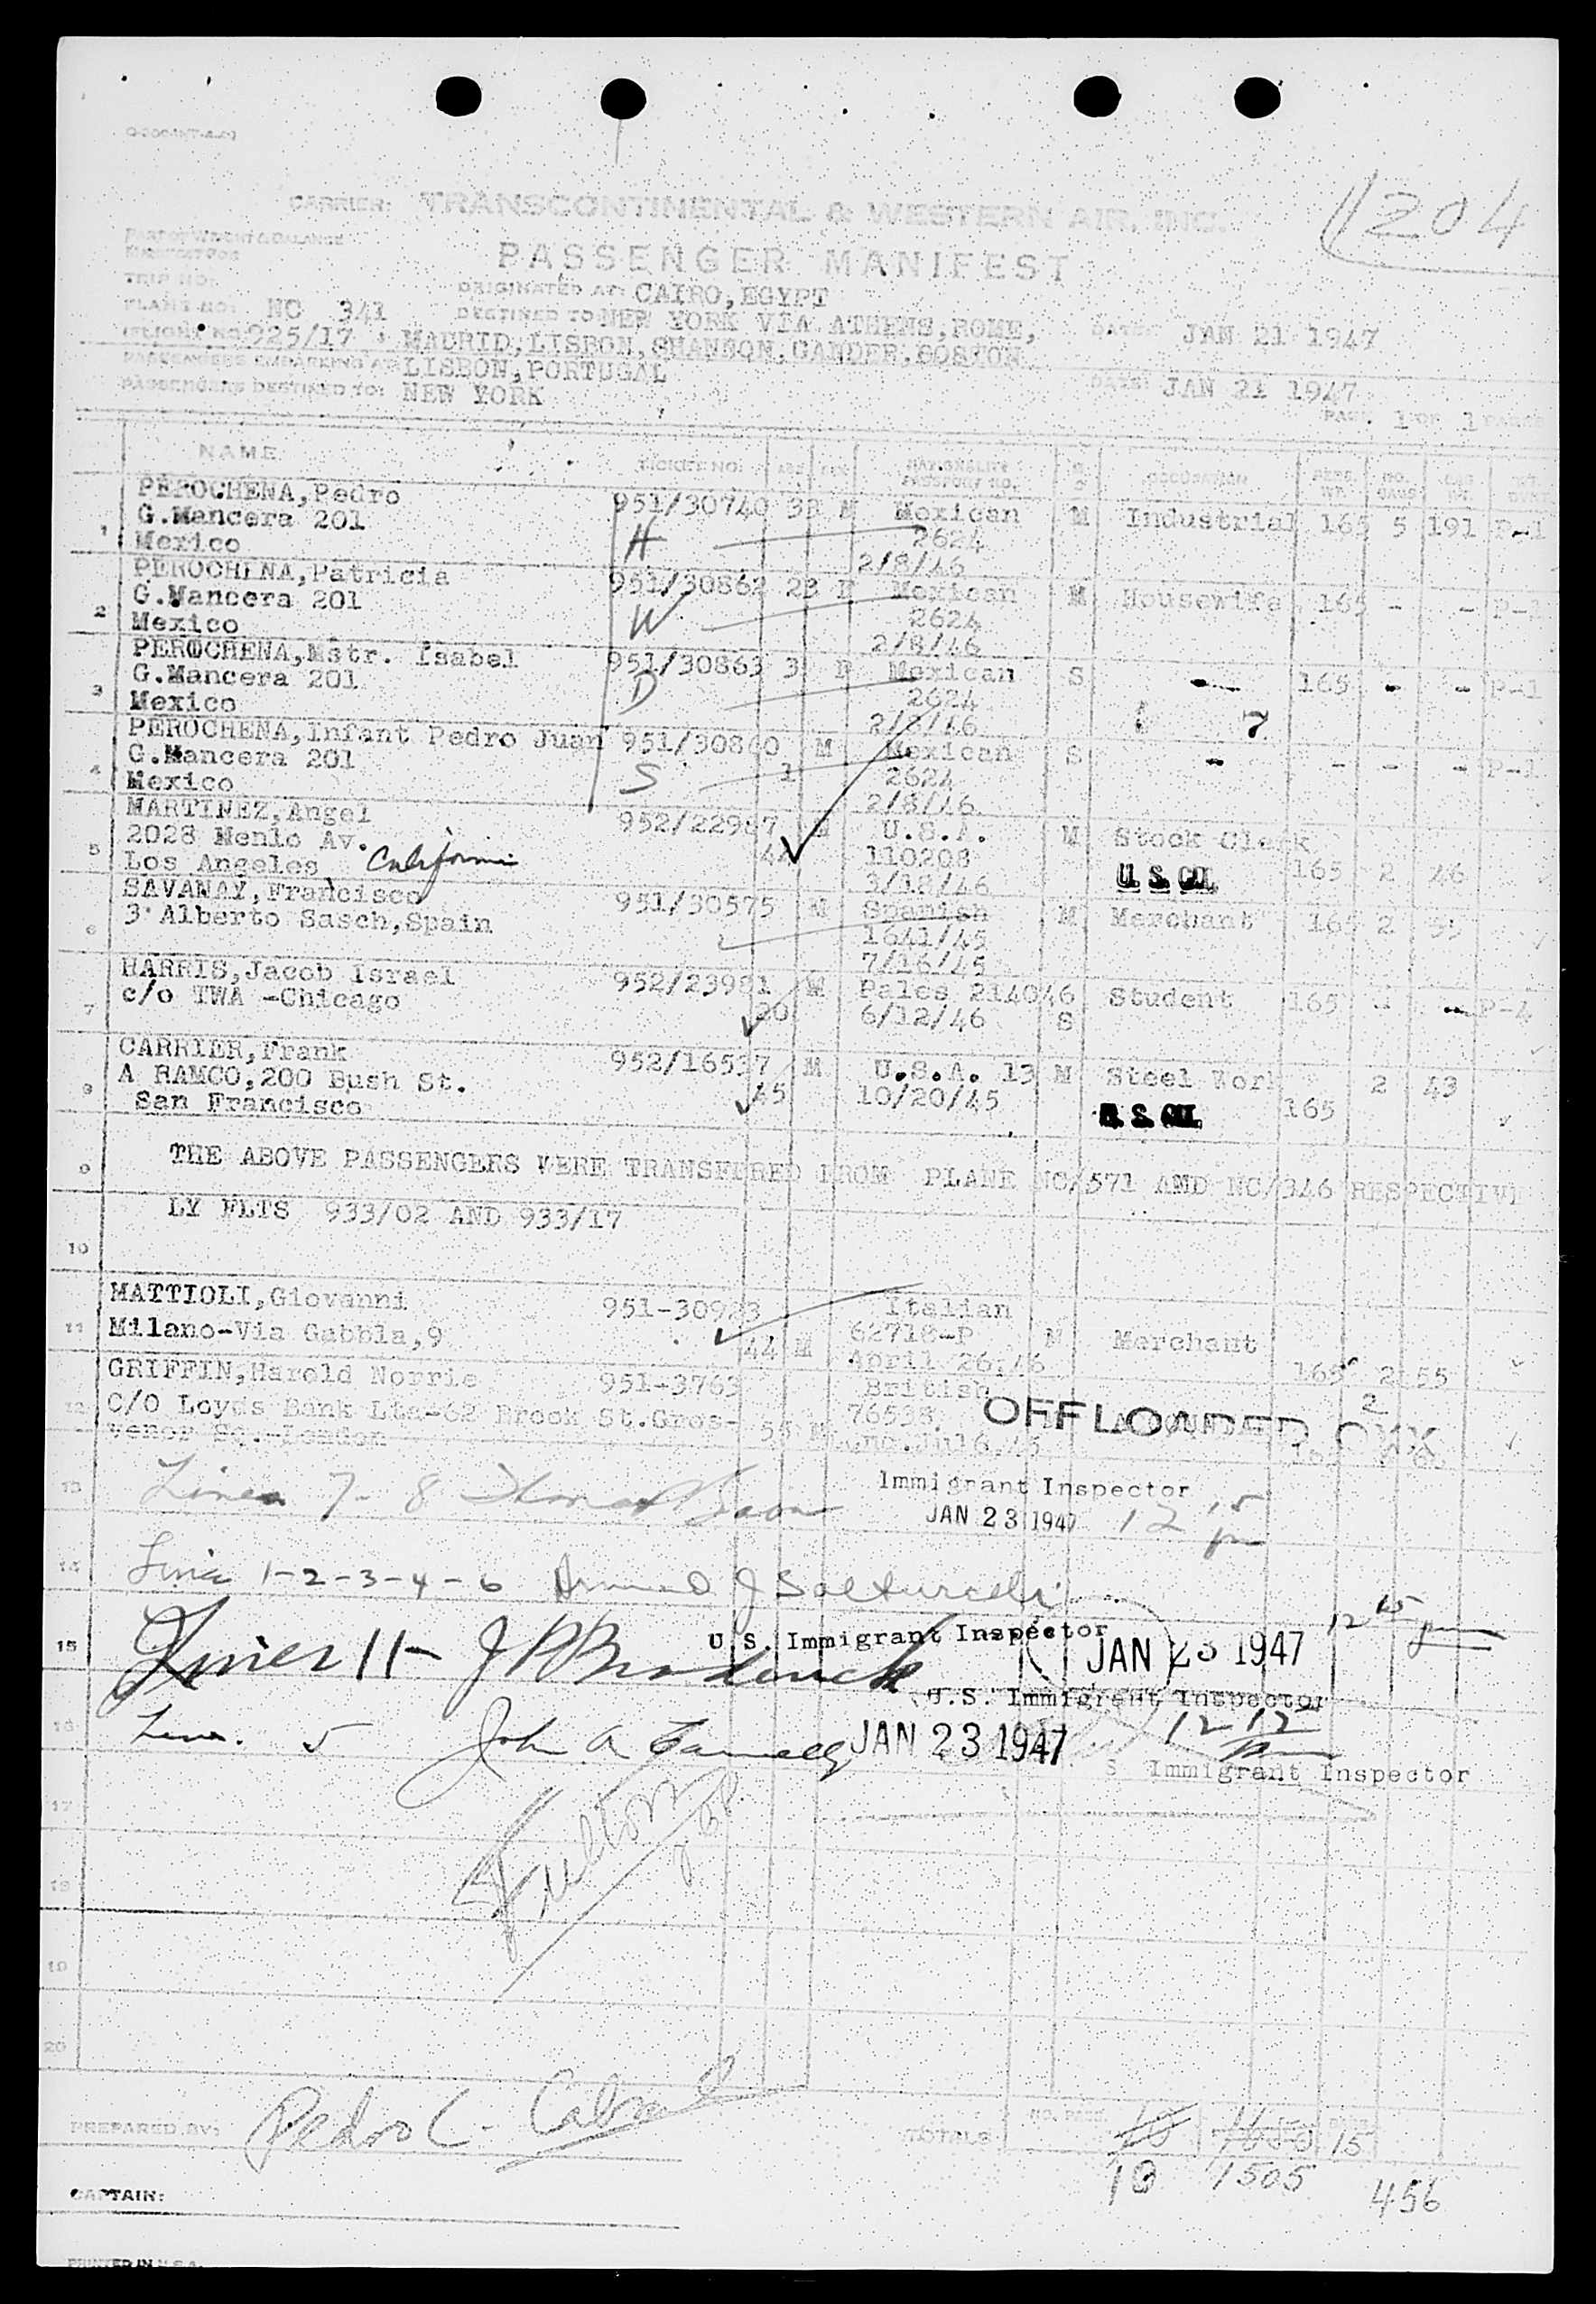 1204
CARRIER: TRANSCONTINENTAL & WESTERN AIR, INC.
PASSENGER MANIFEST
TRIP NO:
ORIGINATED AT: CAIRO, EGYPT
PLANE NO: NC 341
DESTINED TO NEW YORK VIA ATHENS, ROME,
DATE: JAN 21 1947
FLIGHT NO. 925/17
MADRID, LISBON, SHANNON, GANDER, BOSTON
PASSENGERS EMBARKING AT LISBON, PORTUGAL
PASSENGERS DESTINED TO: NEW YORK
DATE: JAN 21 1947
PAGE 1 OF 1 PAGES
NAME TICKET NO. AGE SEX NATIONALITY PASSPORT NO. OCCUPATION
PEROCHENA, Pedro 951/30740 M Mexican M Industrial 165 5 191 P-1
1 G. Mancera 201 H 2624
Mexico 2/8/46
PEROCHENA, Patricia 951/30862 F Mexican M Housewife 165 - - P-1
2 G. Mancera 201 W 2624
Mexico 2/8/46
PEROCHENA, Mstr. Isabel 951/30863 3 F Mexican S - 165 - - P-1
3 G. Mancera 201 D 2624
Mexico 2/8/46 7
PEROCHENA, Infant Pedro Juan 951/30860 M Mexican S - - - - P-1
4 G. Mancera 201 S 1 2624
Mexico 2/8/46
MARTINEZ, Angel 952/22987 M U.S.A. M Stock Clerk
5 2028 Menlo Av. 110208 165 2 46
Los Angeles California 3/18/46 U.S. CIT.
SAVANAY, Francisco 951/30575 M Spanish M Merchant 165 2
6 3 Alberto Sasch, Spain 1641/45
7/16/45
HARRIS, Jacob Israel 952/23981 M Pales 214046 Student 165 - - P-4
7 c/o TWA -Chicago 20 6/12/46 S
CARRIER, Frank 952/16537 M U.S.A. 13 M Steel Work 2 43
8 A RAMCO, 200 Bush St. 45 10/20/45 165
San Francisco U.S. CIT.
9 THE ABOVE PASSENGERS WERE TRANSFERED FROM PLANE NC/571 AMD NC/346 RESPECTIVE
LY FLTS 933/02 AND 933/17
10
MATTIOLI, Giovanni 951-30923 Italian
11 Milano-Via Gabbla, 9 44 M 62718-P M Merchant
April 26, 46 165 2 55
GRIFFIN, Harold Norris 951-3763 British
12 C/O Loyds Bank Lta-62 Brook St. Gros- 55 M 76538 OFFLOADED
venor Sq.-London
13 Lines 7-8 Immigrant Inspector
JAN 23 1947 12 15 pm
14 Line 1-2-3-4-6
U.S. Immigrant Inspector JAN 23 1947 12 15 pm
15 Lines 11- J P Broderick
U.S. Immigrant Inspector
16 Line. 5 John A JAN 23 1947 12 15 pm
S Immigrant Inspector
17
Fulton
18
19
20
PREPARED BY: Pedro C. Cabral
TOTALS 15
10 1505 456
CAPTAIN:
PRINTED IN U.S.A.